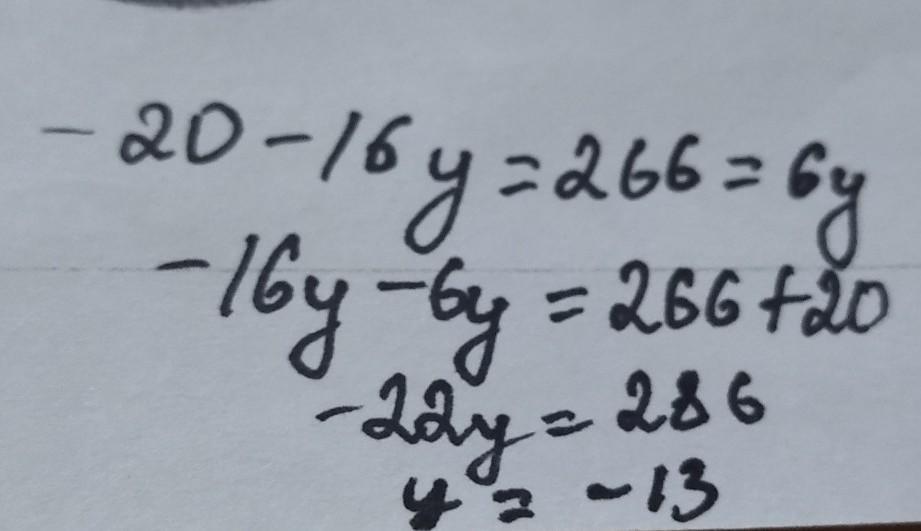 - 20 - 16y = 266 = 6y
- 16y - 6y = 266 + 20
- 22y = 286
y = - 13